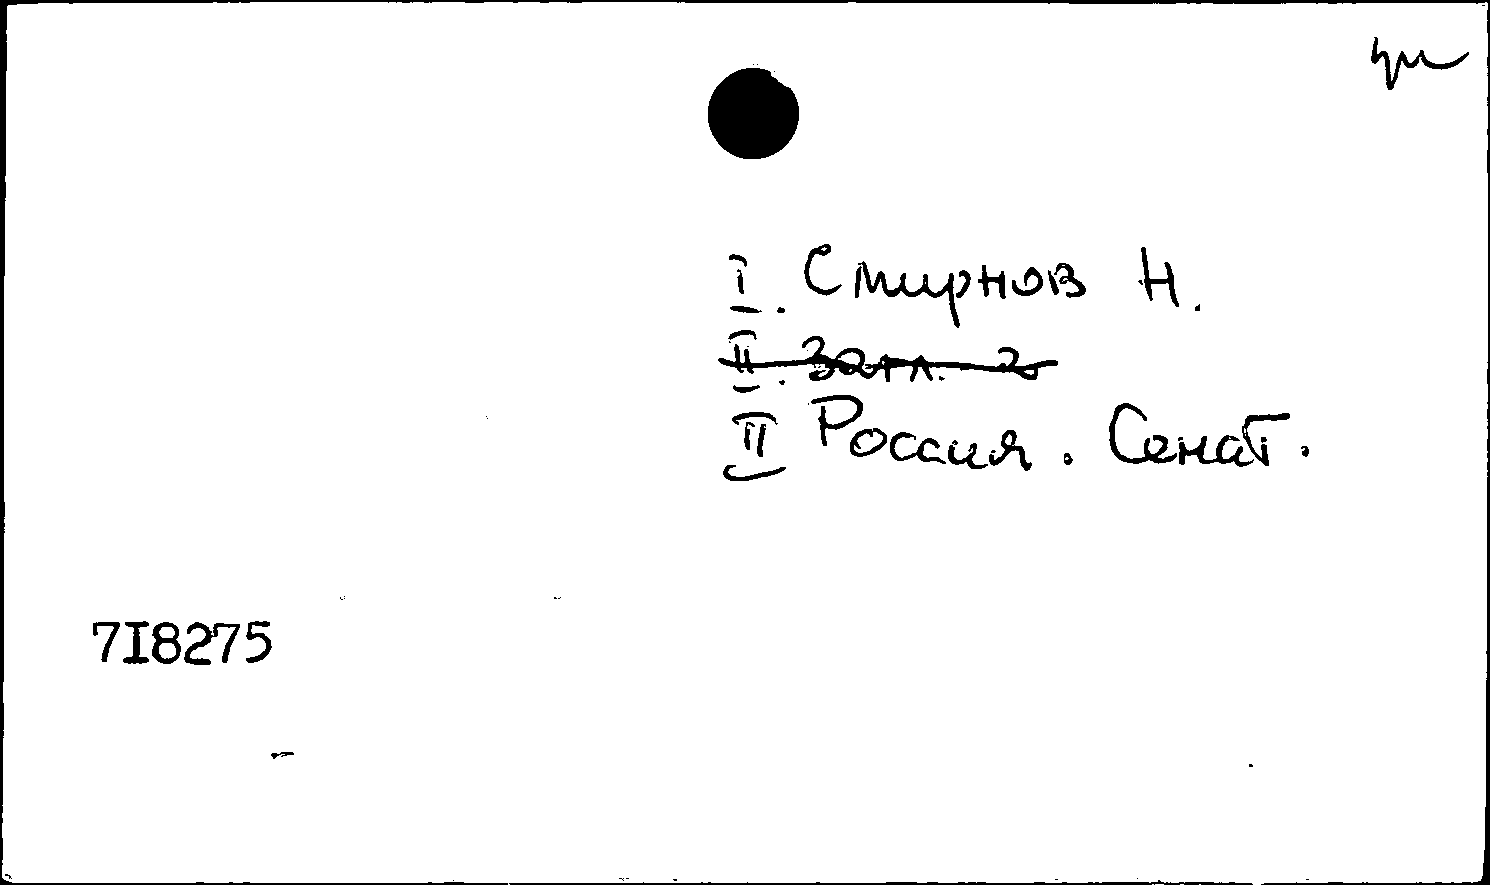 I. Смирнов Н.
II. Загл. 2
II Россия. Сенат.
7I8275